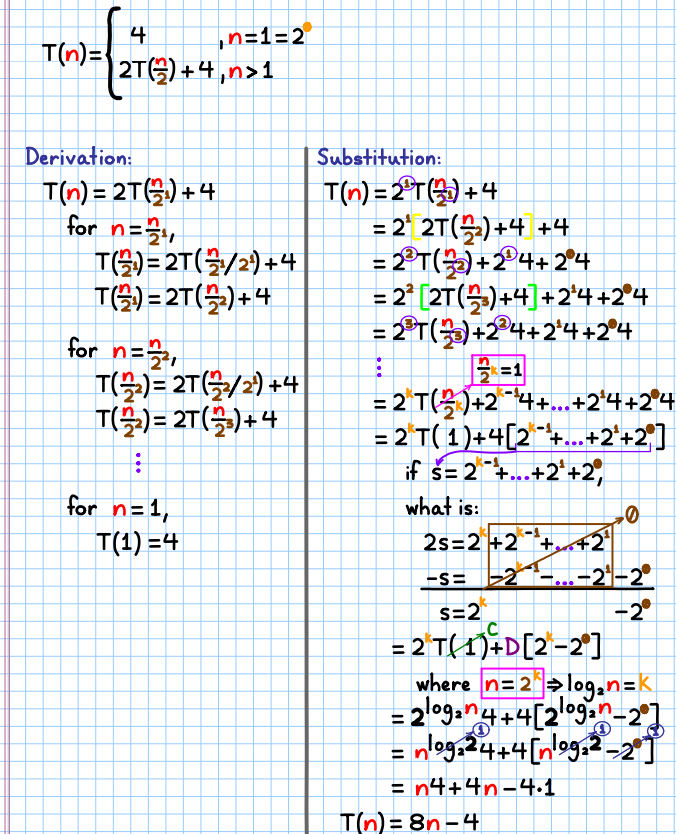 T(n)= { 4 , n=1=2⁰
2T(n/2)+4 , n>1
Derivation:
T(n) = 2T(n/2¹)+4
for n=n/2¹,
T(n/2¹)=2T(n/2¹/2¹)+4
T(n/2¹)=2T(n/2²)+4
for n=n/2²,
T(n/2²)=2T(n/2²/2¹)+4
T(n/2²)=2T(n/2³)+4
⋮
for n=1,
T(1)=4
Substitution:
T(n)=2¹T(n/2¹)+4
=2¹[2T(n/2²)+4]+4
=2²T(n/2²)+2¹4+2⁰4
=2²[2T(n/2³)+4]+2¹4+2⁰4
=2³T(n/2³)+2²4+2¹4+2⁰4
⋮
n/2ᵏ=1
=2ᵏT(n/2ᵏ)+2ᵏ⁻¹4+...+2¹4+2⁰4
=2ᵏT(1)+4[2ᵏ⁻¹+...+2¹+2⁰]
if s=2ᵏ⁻¹+...+2¹+2⁰,
what is: 0
2s=2ᵏ+2ᵏ⁻¹+...+2¹
-s= -2ᵏ⁻¹-...-2¹-2⁰
s=2ᵏ -2⁰
C
=2ᵏT(1)+D[2ᵏ-2⁰]
where n=2ᵏ ⇒ log₂n=K
=2^log₂n 4+4[2^log₂n -2⁰]
1 1 1
=n^log₂2 4+4[n^log₂2 -2⁰]
= n4+4n-4·1
T(n)= 8n-4